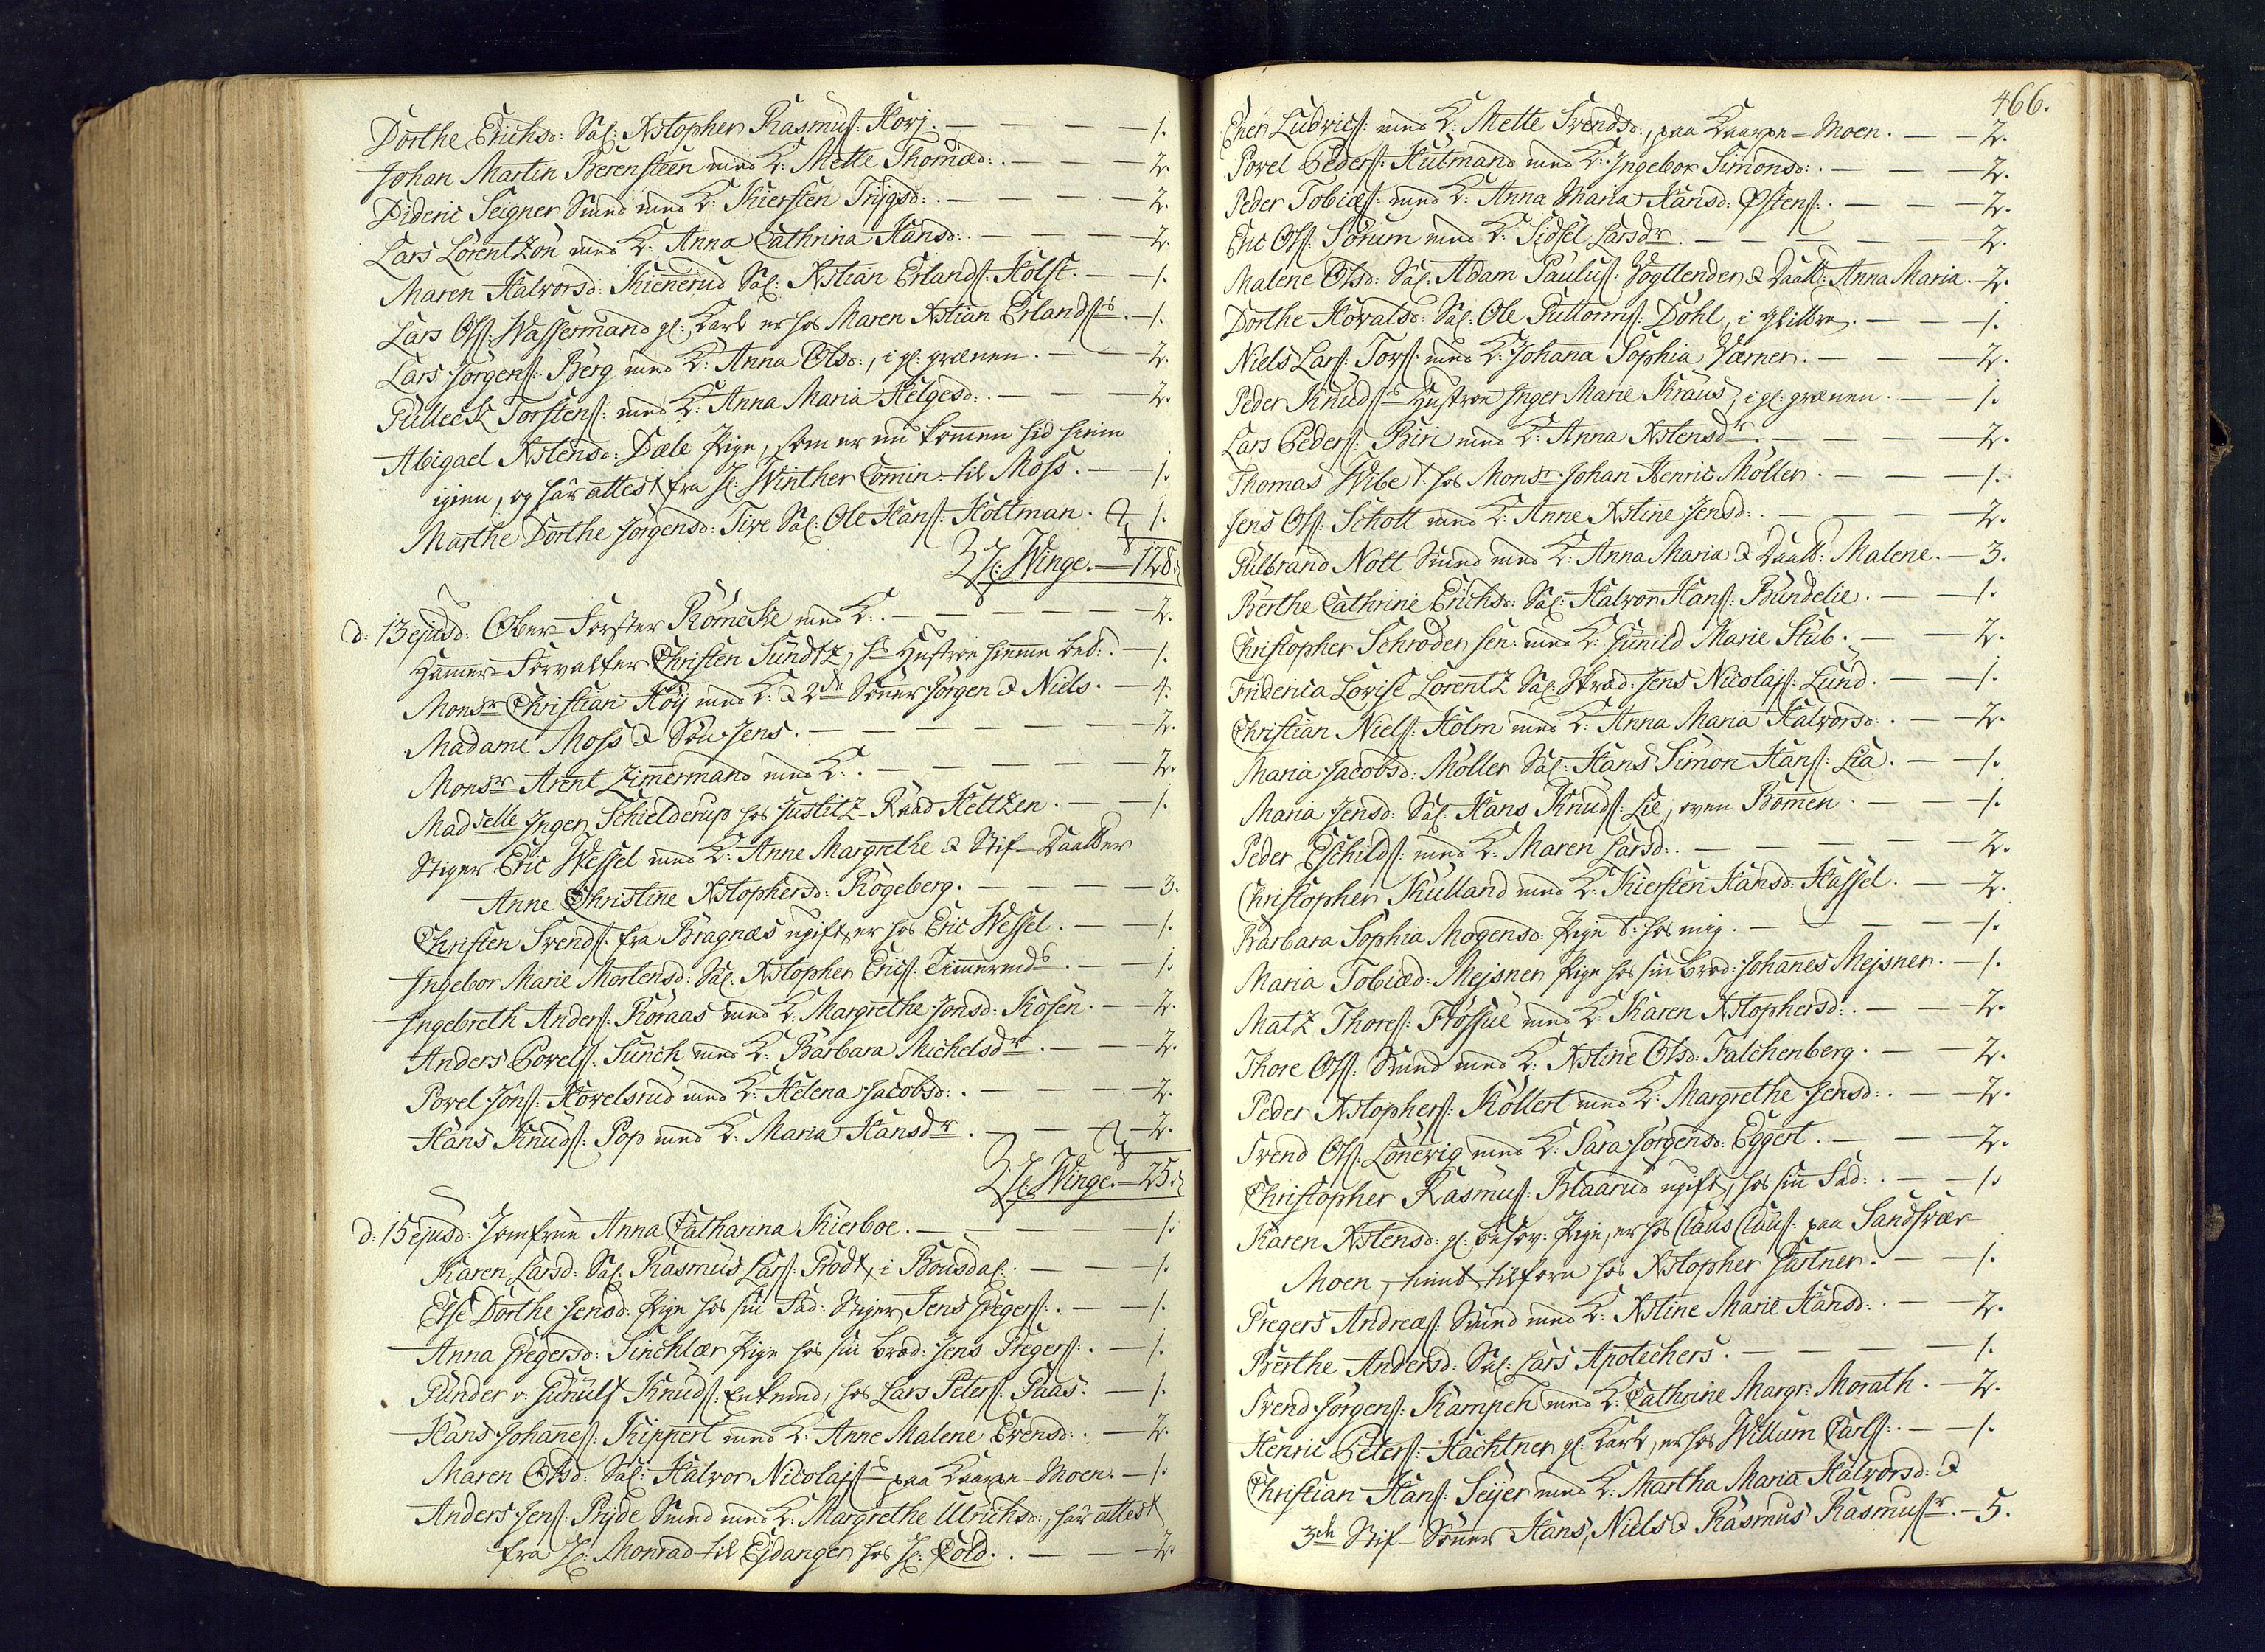 Dorthe Erichsd: Sal: Xstopher Rasmuss: Hovj. — 1.
Johan Martin Berensteen med K: Mette Thomæd: — 2.
Dideric Seigner Smed med K: Kiersten Trÿgsd: — 2.
Lars Lorentzon med K: Anna Cathrina Hansd: — 2.
Maren Halvorsd: Kienerud Sal: Xstian Erlands: Holst. — 1.
Lars Ols: Wassermand gl: Karl er hos Maren Xstian Erlandss. — 1.
Lars Jørgens: Berg med K: Anna Olsd:, i gl: grænen. — 2.
Gulleck Torstens: med K: Anna Maria Helgesd: — 2.
Abigael Xstensd: Dæle Pige, som er nu kommen hid hiem
igien, og har attest fra H: Winther Comin: til Moss. — 1.
Marthe Dorthe Jørgensd: Tire Sal: Ole Hans: Holtman. 1.
H: Winge. — 128.
d: 13 ejusd: Ober-Forster Römcke med K: — 2.
Hammer-Forvalter Christen Sundtz, Hustroe hiemme — 1.
Monsr Christian Höÿ med K: & 2de Sönner Jörgen & Niels. — 4.
Madame Moss & Sön Jens. — 2.
Monsr Arent Zimmermand med K: — 2.
Madselle Inger Schielderup hos Justitz-Raad Heltzen. — 1.
Stiger Eric Wessel med K: Anne Margrethe & Stif-Daatter
Anne Christine Xstophersd: Rogeberg. — 3.
Christen Svends: fra Bragnæs ugift, er hos Eric Wessel. — 1.
Ingebor Marie Mortensd: Sal: Xstopher Erics: Timmermds. — 1.
Ingebreth Anders: Röraas med K: Margrethe Jonsd: Kosen. — 2.
Anders Povels: Sunch med K: Barbara Michelsdr. — 2.
Povel Jöns: Hovelsrud med K: Helena Jacobsd: — 2.
Hans Knuds: Pop med K: Maria Hansdr. — 2.
H: Winge. — 25.
d: 15 ejusd: Jomfrue Anna Catharina Kierboe. — 1.
Karen Larsd: Sal: Rasmus Lars: Prodt, i — 1.
Else Dorthe Jensd: Pige hos sin Fad: Stiger Jens Gregers: — 1.
Anna Gregersd: Sinchlær Pige hos sin Brod: Jens Gregers: — 1.
Gunder v: Gunulf Knuds: Enkemd, hos Lars Peters: Paas. — 1.
Hans Johanes: Kippert med K: Anne Malene Evensd: — 2.
Maren Olsd: Sal: Halvor Nicolajss paa Kaarpe-Moen. — 1.
Anders Jens: Prÿde Smed med K: Margrethe Ulrichsd:, har attest
fra H: Monrad til Ejdanger hos H: Cold. — 2.
466.
Ener Ludvics: med K: Mette Svendsd:, paa Kaarpe-Moen. — 2.
Povel Peders: Hutmand med K: Ingebor Simonsd: — 2.
Peder Tobiæs: med K: Anna Maria Hansd: Østens: — 2.
Eric Ols: Sörum med K: Sidsel Larsdr. — 2.
Malene Olsd: Sal: Adam Paulus: Vogtlender & Daatt: Anna Maria. — 2.
Dorthe Hovalsd: Sal: Ole Guttorms: Dohl, i — 1.
Niels Lars: Tors: med K: Johana Sophia Værner. — 2.
Peder Knudss Hustroe Inger Marie Kraus, i gl: grænen. — 1.
Lars Peders: Biri med K: Anna Xstensdr. — 2.
Thomas Wibe T: hos Monsr Johan Henric Möller. — 1.
Jens Ols: Schott med K: Anne Xstine Jensd: — 2.
Gulbrand Nott Smed med K: Anna Maria & Daatt: Malene. — 3.
Berthe Cathrine Erichsd: Sal: Halvor Hans: Bundelie. — 1.
Christopher Schroder sen: med K: Gunild Marie Stub. — 2.
Friderica Lovise Lorentz Sal: Jens Nicolajs: Lund. — 1.
Christian Niels: Holm med K: Anna Maria Halvorsd: — 2.
Maria Jacobsd: Möller Sal: Hans Simon Hans: Lia. — 1.
Maria Jensd: Sal: Hans Knuds: Lie, oven Bommen. — 1.
Peder Eschilds: med K: Maren Larsd: — 2.
Christopher Kulland med K: Kiersten Hansd: Hassel. — 2.
Barbara Sophia Mogensd: Pige T: hos mig. — 1.
Maria Tobiæd: Mejsner Pige hos sin Brod: Johannes Mejsner. — 1.
Matz Thores: Fossue med K: Karen Xstophersd: — 2.
Thore Ols: Smed med K: Xstine Olsd: Falchenberg. — 2.
Peder Xstophers: Kollert med K: Margrethe Jensd: — 2.
Svend Ols: Lönevig med K: Sara Jörgensd: Eggert. — 2.
Christopher Rasmus: Blaarud ugift, hos sin Fad: — 1.
Karen Xstensd: gl: Pige, er hos Claus Claus: paa Sandsvær-
Moen, tient tilforn hos Xstopher Gartner. — 1.
Gregers Andreæs: Smed med K: Xstine Marie Hansd: — 2.
Berthe Andersd: Sal: Lars Apotechers. — 1.
Svend Jörgens: Kampeh med K: Cathrine Margr: Morath. — 2.
Henric Peters: Hachtner gl: Karl, er hos Willum Carls: — 1.
Christian Hans: Seijer med K: Martha Maria Halvorsd: &
3de Stif-Sönner Hans, Niels & Rasmus Rasmussr. — 5.